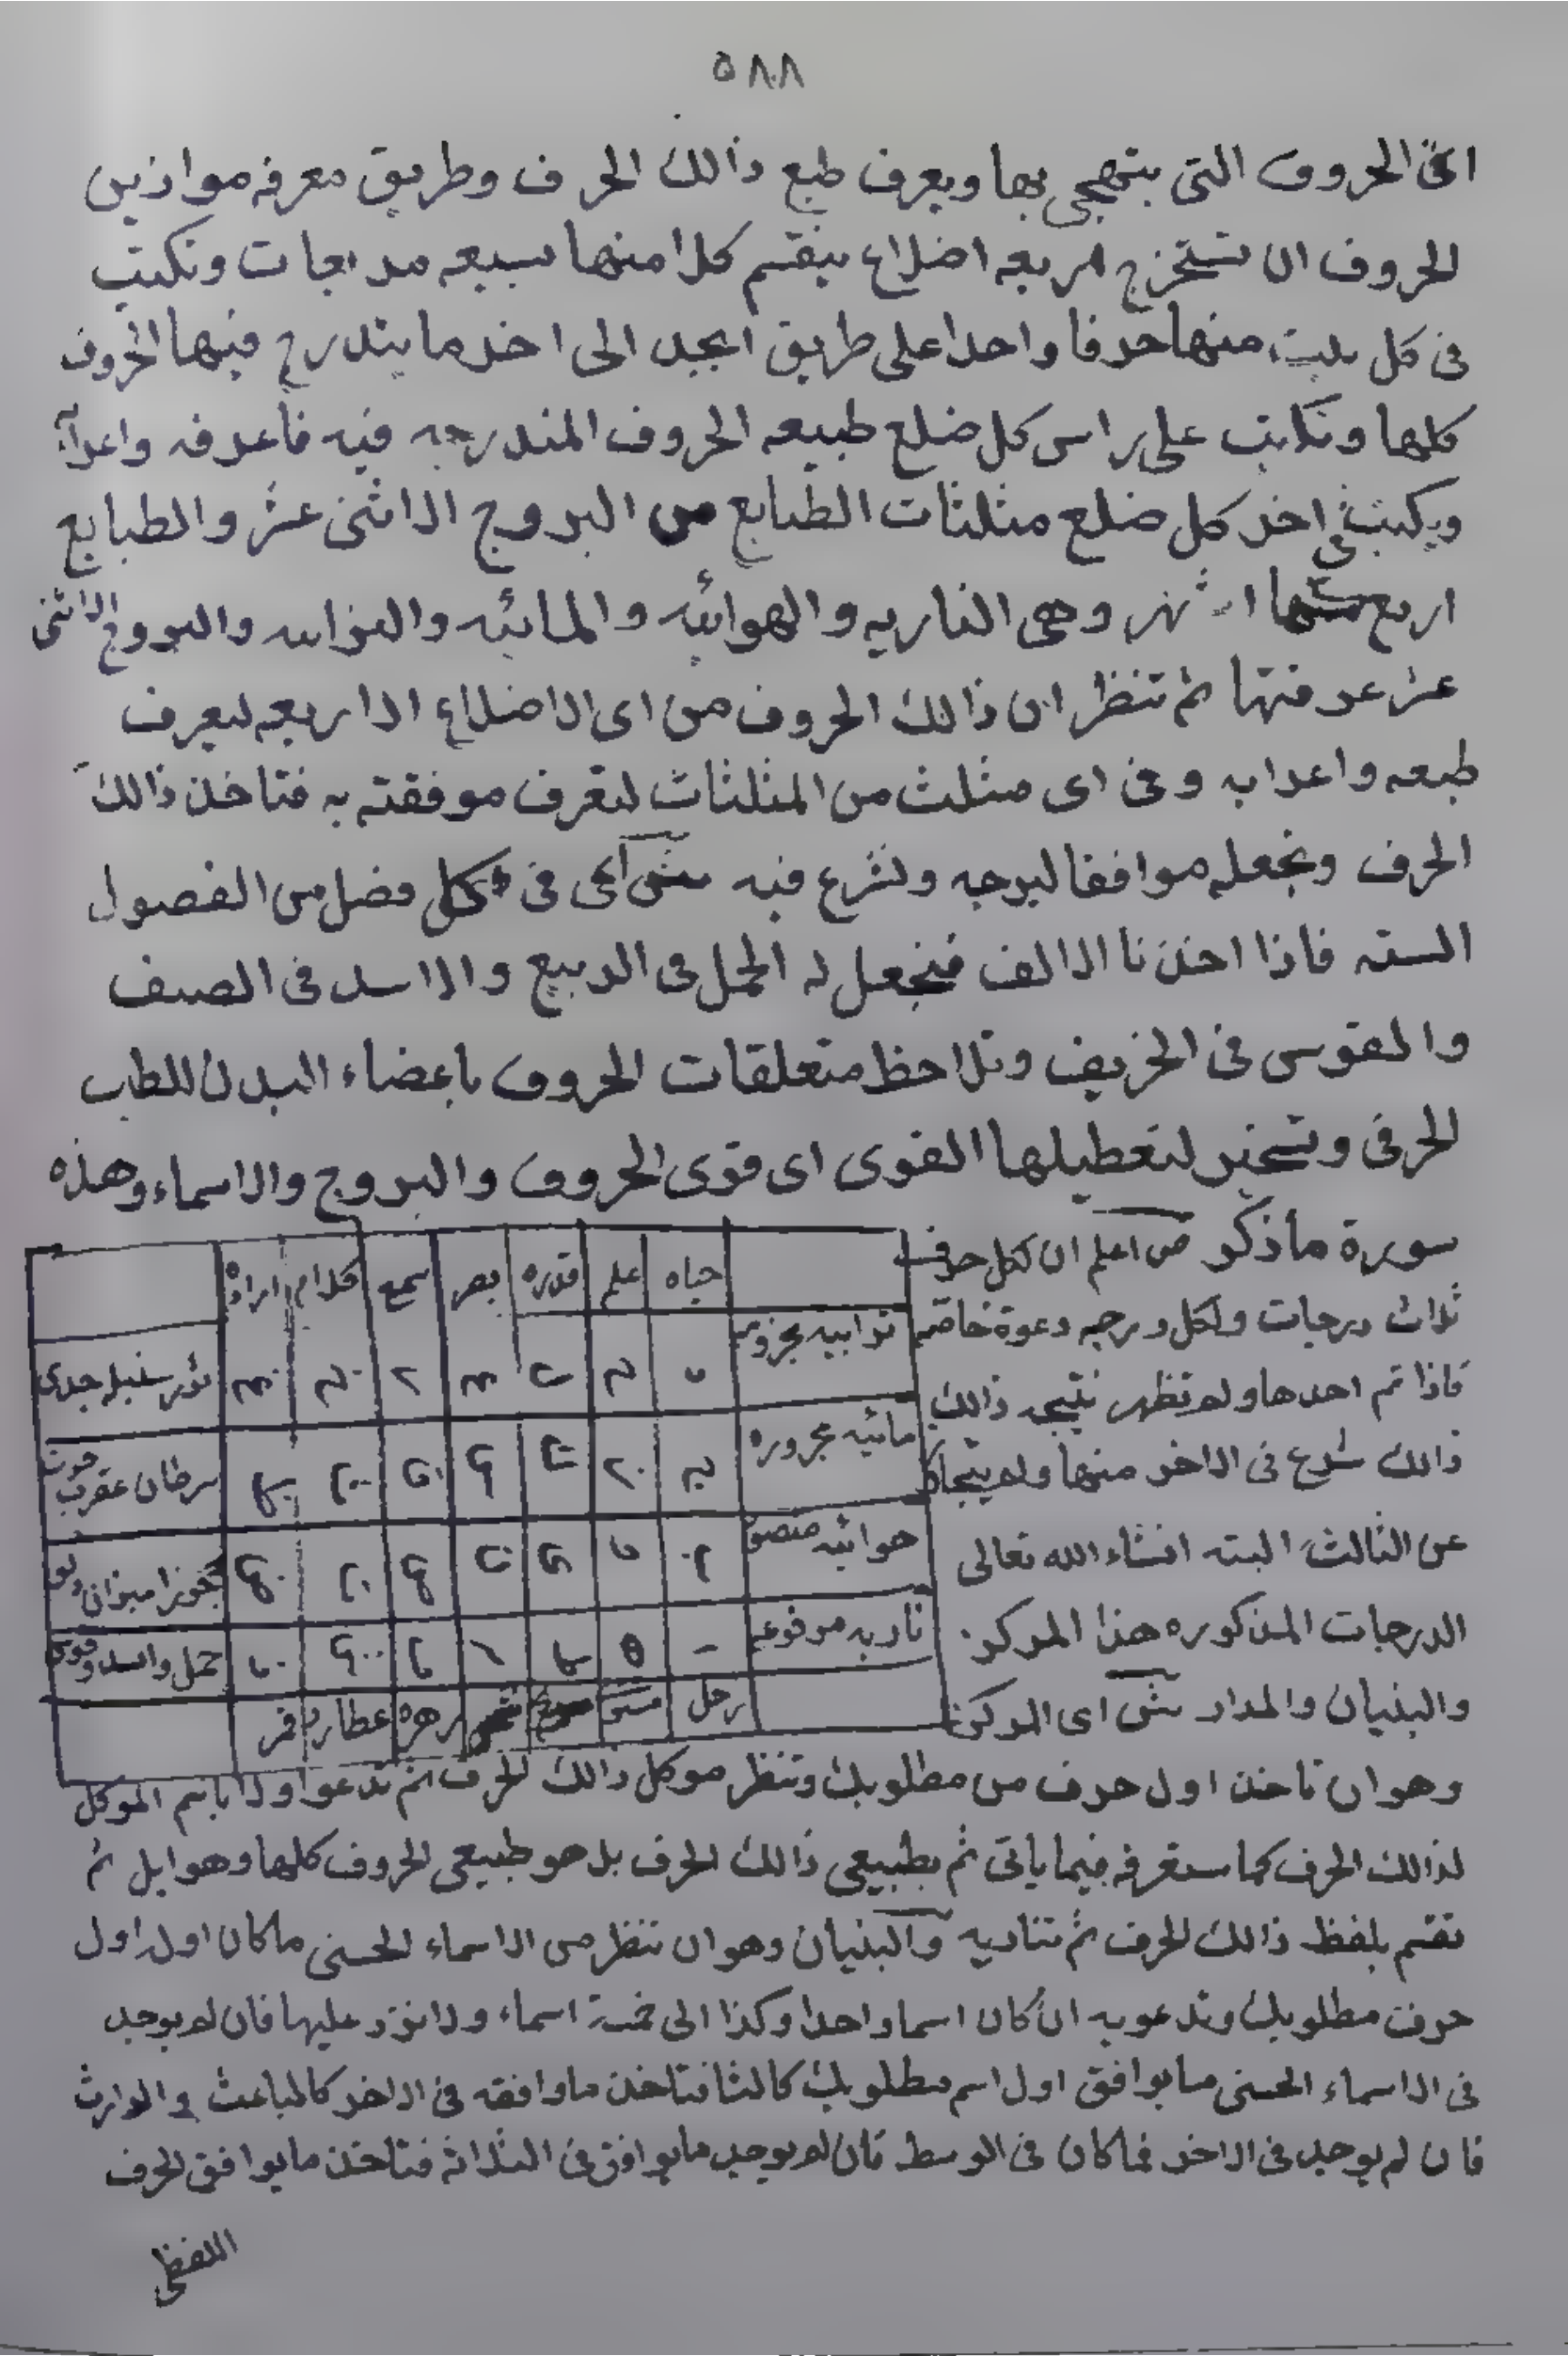 ٥٨٨
الحروف التى يتهجى بها ويعرف طبع ذالك الحرف وطريق معرفه موازين
الحروف ان تستخرج اربعه اضلاع ينقسم كلا منها سبعه مربعات وتكتب
فى كل بيت منها حرفا واحدا على طريق ابجد الى اخر ما يندرج فيها الحروف
كلها وتكتب على راس كل ضلع طبيعه الحروف المندرجه فيه فاعرفه واعرا
ويكتب فى اخر كل ضلع مثلثات الطبايع من البروج الاثنى عشر والطبايع
اربع وهى الناريه والهوائيه والمائيه والترابيه والبروج الاثنى
عشر عرفتها ثم تنظر ان ذالك الحروف من اى الاضلاع الاربعه لتعرف
طبعه واعرابه وفى اى مثلث من المثلثات لتعرف موفقته به فتاخذ ذالك
الحرف وتجعله موافقا لبرجه وتشرع فيه ش اى فى كل فصل من الفصول
السته فاذا اخذنا الالف فنجعل له الحمل فى الربيع والاسد فى الصيف
والقوس فى الخريف وتلاحظ متعلقات الحروف باعضاء البدن للطب
الحرفى وتسخير لتعطيلها القوى اى قوى الحروف والبروج والاسماء وهذه
سورة ماذكر ص اعلم ان لكل حرف
ثلاث درجات ولكل درجه دعوة خاصه
فاذا تم احدها ولم تظهر نتيجه ذالك
ذالك شرع فى الاخر منها ولم يتجاوز
عن الثالث البته انشاء الله تعالى
الدرجات المذكوره هذا المركز
والبنيان والمدار ش اى المركز
حياه علم قدره بصر سمع كلام اراده
ترابيه مجزومه د ح ل ع ر خ غ ثور سنبله جدى
مائيه مجروره ج ز ك س ق ث ظ سرطان عقرب حوت
هوائيه منصوبه ب و ى ن ص ت ض جوزا ميزان دلو
ناريه مرفوعه ا ه ط م ف ش ذ حمل واسد وقوس
زحل مشترى مريخ شمس زهره عطارد قمر
وهو ان تاخذ اول حرف من مطلوبك وتنظر موكل ذالك الحرف ثم تدعوا اولا باسم الموكل
لذالك الحرف كما ستعرفه فيما ياتى ثم بطبيعى ذالك الحرف بل هو طبيعى الحروف كلها وهو ايل ثم
تقسم بلفظ ذالك الحرف ثم تناديه والبنيان وهو ان تنظر من الاسماء الحسنى ماكان اوله اول
حرف مطلوبك وتدعو به ان كان اسما واحدا وكذا الى خمسة اسماء ولا تزد عليها فان لم يوجد
فى الاسماء الحسنى ما يوافق اول اسم مطلوبك كالثا فتاخذ ما وافقه فى الاخر كالباعث والوارث
فان لم يوجد فى الاخر فما كان فى الوسط فان لم يوجد ما يوافق فى الثلاثه فتاخذ ما يوافق الحرف
اللفظى